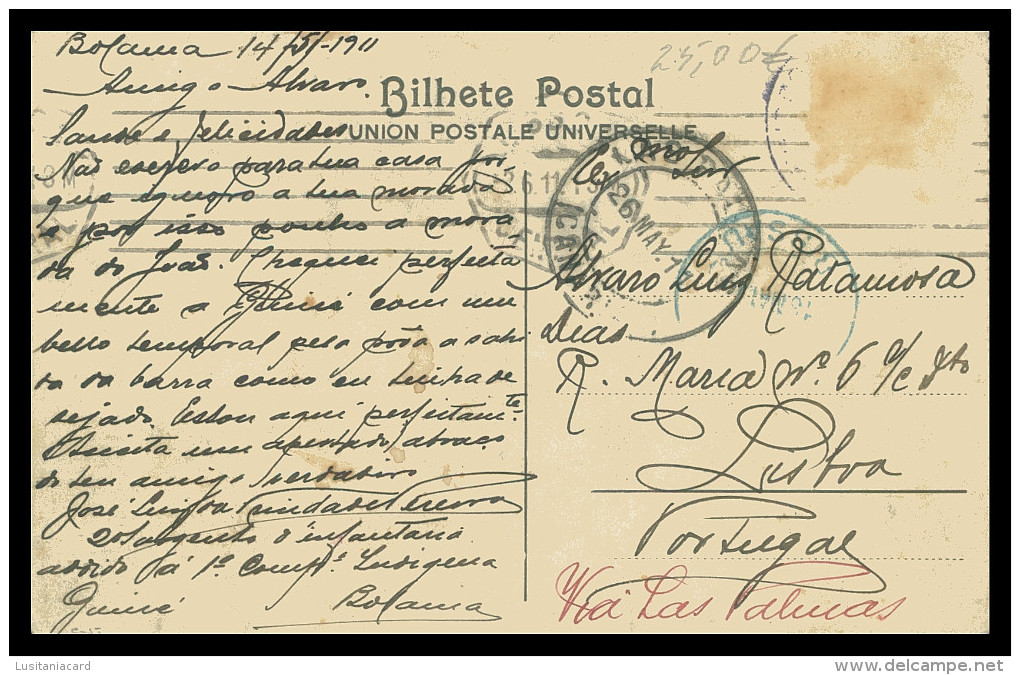 Bolama 14/5/-1911
Amigo Alvaro.
Saude e felicidades
Não escrevo para tua casa por
que ignoro a tua morada
e por isso ponho a mora
da do João. Cheguei perfeita
mente a Guiné com um
bello temporal pela prôa a sahi
da da barra como eu tinha de
sejado. Estou aqui perfeitamte.
Aceita um apertado abraço
do teu amigo verdadeiro
José Luiz da Trindade Pereira
2º Sargento d'infantaria
addido á 1ª Compª. Indigena
Guiné Bolama
25,00€
Bilhete Postal
UNION POSTALE UNIVERSELLE
Exmo Snr
26 MAY 11
Alvaro Luiz Matamosa
Dias
R. Maria Nº. 6 r/c Dto
Lisboa
Portugal
Via Las Palmas
Lusitaniacard
© www.delcampe.net